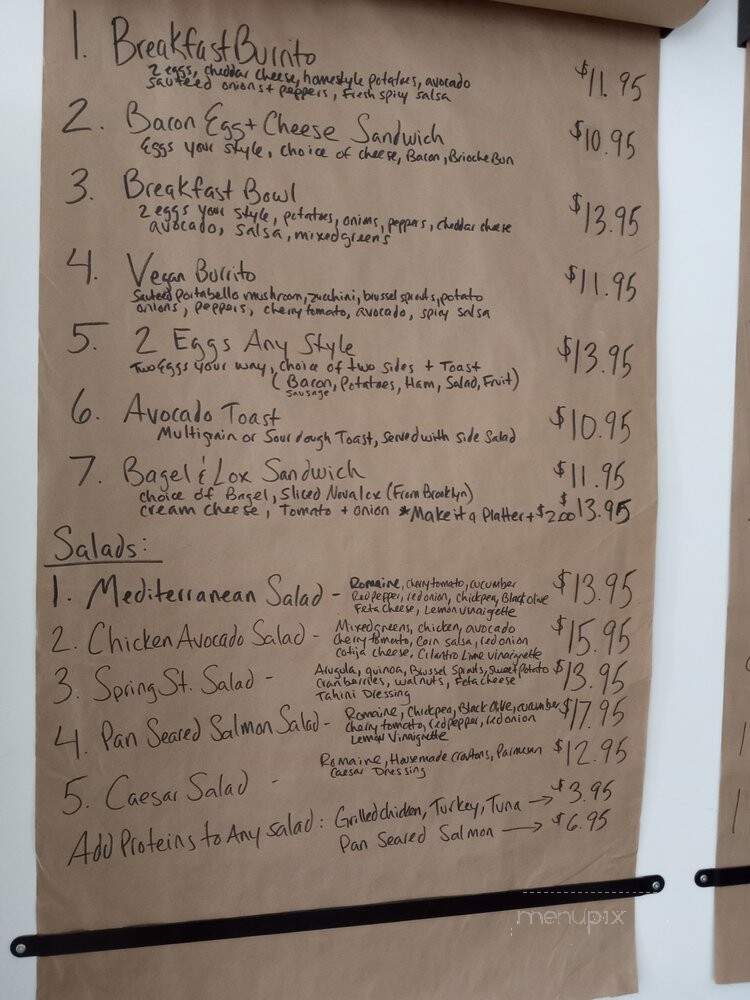 1. Breakfast Burrito $11.95
2 eggs, cheddar cheese, homestyle potatoes, avocado
sauteed onions + peppers, fresh spicy salsa
2. Bacon Egg + Cheese Sandwich $10.95
Eggs your style, choice of cheese, Bacon, Brioche Bun
3. Breakfast Bowl $13.95
2 eggs your style, potatoes, onions, peppers, cheddar cheese
avocado, salsa, mixed greens
4. Vegan Burrito $11.95
Sauteed Portabello mushroom, zucchini, brussel sprouts, potato
onions, peppers, cherry tomato, avocado, spicy salsa
5. 2 Eggs Any Style $13.95
Two Eggs your way, choice of two sides + Toast
(Bacon, Potatoes, Ham, Salad, Fruit)
sausage
6. Avocado Toast $10.95
Multigrain or Sourdough Toast, Served with side Salad
7. Bagel & Lox Sandwich $11.95
choice of Bagel, Sliced Nova lox (From Brooklyn)
cream cheese, Tomato + onion *Make it a Platter + $2.00 $13.95
Salads:
1. Mediterranean Salad - Romaine, cherry tomato, cucumber $13.95
Red pepper, red onion, chickpea, Black olive
Feta Cheese, Lemon vinaigette
2. Chicken Avocado Salad - Mixed greens, chicken, avocado $15.95
cherry tomato, Corn salsa, red onion
Cotija cheese, Cilantro Lime vinaigrette
3. Spring St. Salad - Arugula, quinoa, Brussel Sprouts, Sweet Potato $13.95
Cranberries, walnuts, Feta cheese
Tahini Dressing
4. Pan Seared Salmon Salad - Romaine, Chickpea, Black Olive, cucumber $17.95
cherry tomato, red pepper, red onion
Lemon Vinaigrette
5. Caesar Salad - Romaine, Housemade croutons, Parmesan $12.95
Caesar Dressing
Add Proteins to Any salad: Grilled chicken, Turkey, Tuna → $3.95
Pan Seared Salmon → $6.95
menupix